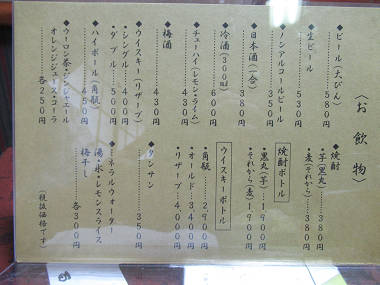 〈お飲物〉
◆ビール(大びん)
580円
◆生ビール
530円
◆ノンアルコールビール
350円
◆日本酒(一合)
380円
◆冷酒(300ml)
600円
◆チューハイ(レモン・ライム)
430円
◆梅酒
450円
◆ウイスキー(リザーブ)
・シングル 400円
・ダブル 500円
◆ハイボール(角瓶)
450円
◆ウーロン茶・ジンジャエール
オレンジジュース・コーラ
各250円
◆焼酎
・芋(黒丸) 380円
・麦(それから) 380円
焼酎ボトル
・黒丸(芋) 1900円
・それから(麦) 1900円
ウイスキーボトル
・角瓶 2900円
・オールド 3400円
・リザーブ 4000円
◆タンサン
350円
◆ミネラルウォーター
湯・氷・レモンスライス
梅干し
各300円
(税抜価格です)